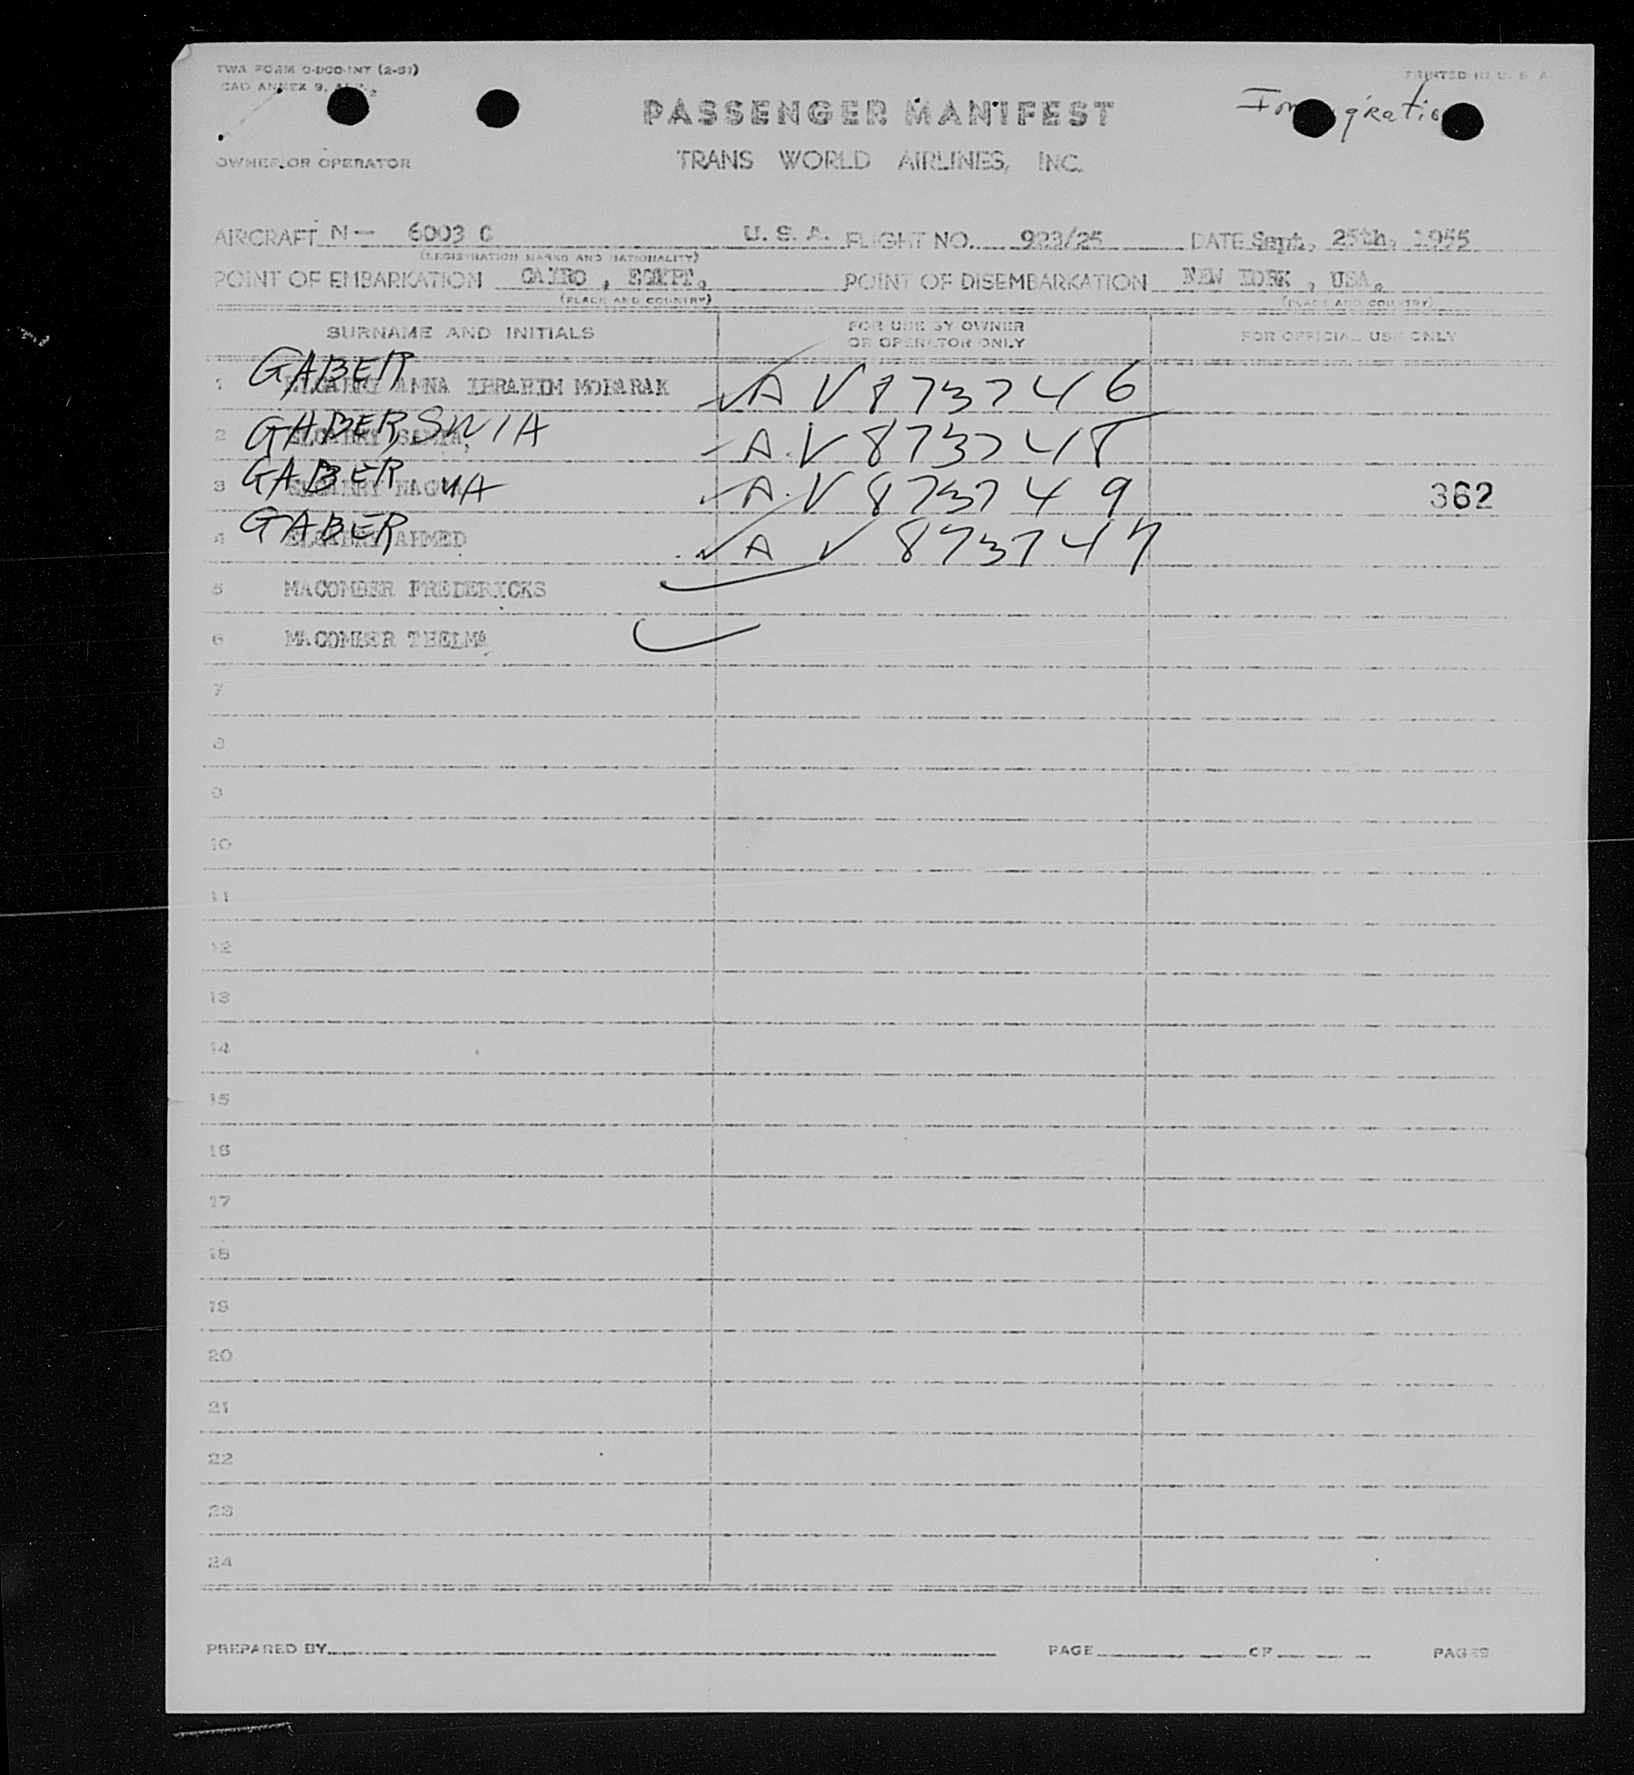 TWA FORM O-800-INT (2-51)
PRINTED IN U. S. A.
ICAO ANNEX 9, APP. 2
PASSENGER MANIFEST
Immigration
OWNER OR OPERATOR
TRANS WORLD AIRLINES, INC.
AIRCRAFT N- 6003 C U. S. A. FLIGHT NO. 923/25 DATE Sept, 25th, 1955
(REGISTRATION MARKS AND NATIONALITY)
POINT OF EMBARKATION CAIRO , EGYPT, POINT OF DISEMBARKATION NEW YORK , USA,
(PLACE AND COUNTRY) (PLACE AND COUNTRY)
SURNAME AND INITIALS FOR USE BY OWNER OR OPERATOR ONLY FOR OFFICIAL USE ONLY
GABER
1 AMNA IBRAHIM MOBARAK A V 873746
2 GABER, SANIA A.V 873748
3 GABER A.V 873749 362
GABER
4 AHMED A V 873747
5 MACOMBER FREDERICKS
6 MACOMBER THELMA
7
8
9
10
11
12
13
14
15
16
17
18
19
20
21
22
23
24
PREPARED BY PAGE OF PAGES